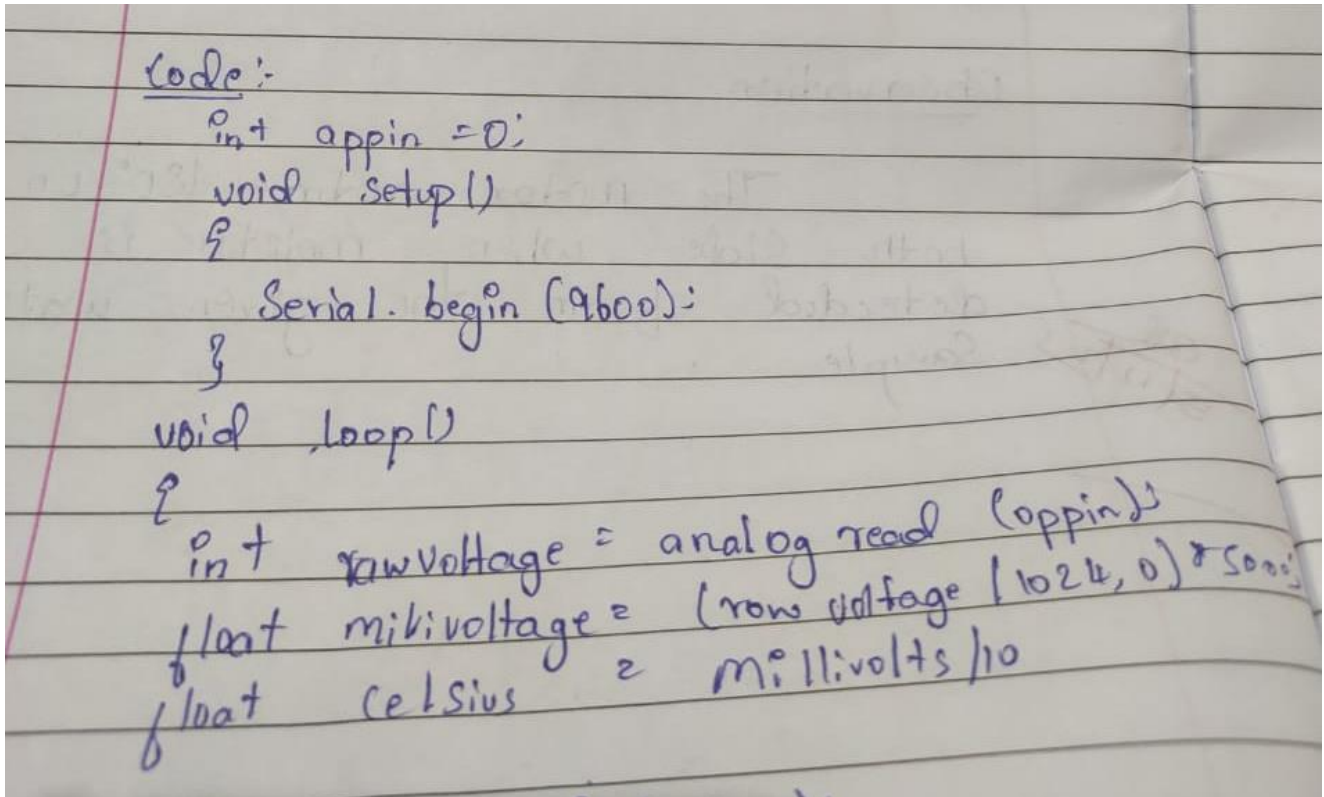 Code :-
int appin = 0;
void setup()
{
Serial. begin (9600);
}
void loop()
{
int rawvoltage = analog read (oppin);
float milivoltage = (row voltage / 1024, 0) * 5000;
float celsius = millivolts /10